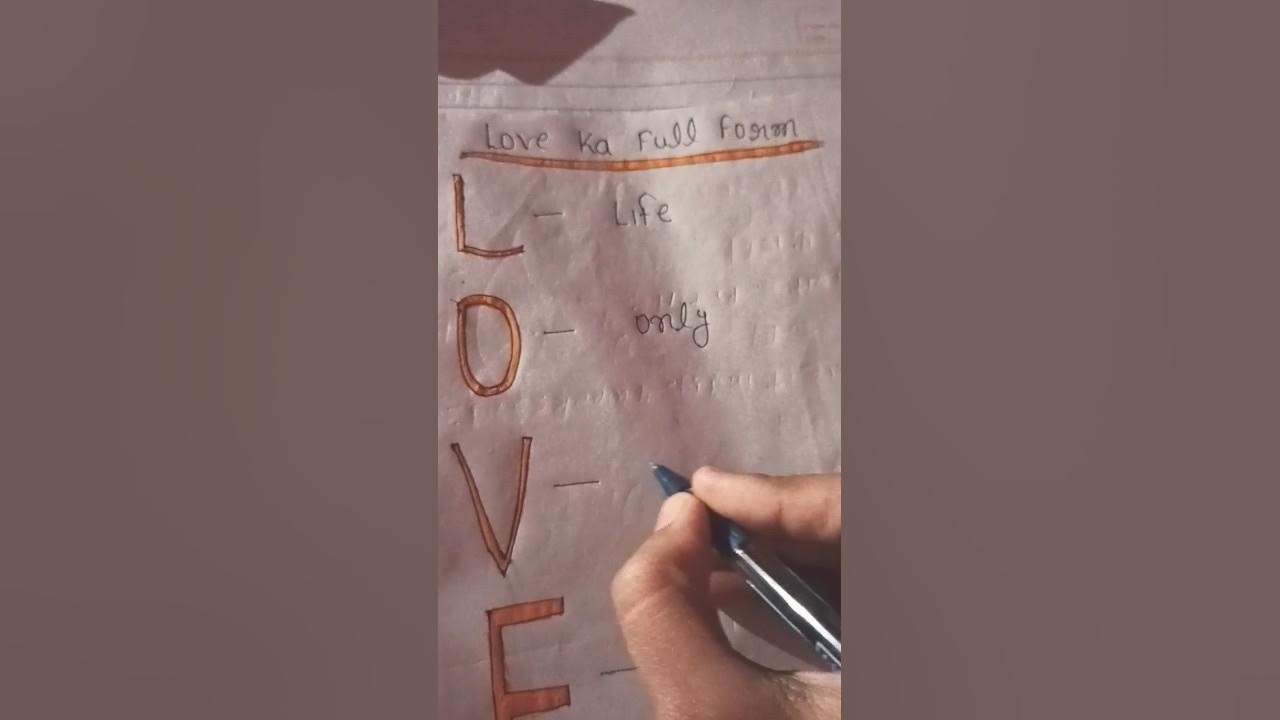 Love Ka Full Form
L - Life
O - only
V -
E -